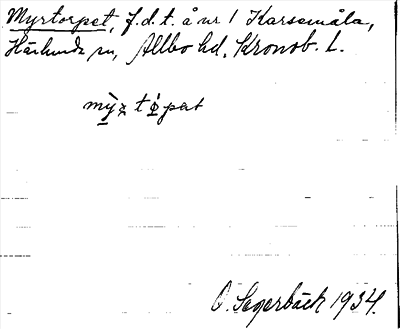 Myrtorpet, f.d.t. å nr 1 Karsemåla,
Härlunda sn, Allbo hd, Kronob. L.
O. Segerbäck 1934.